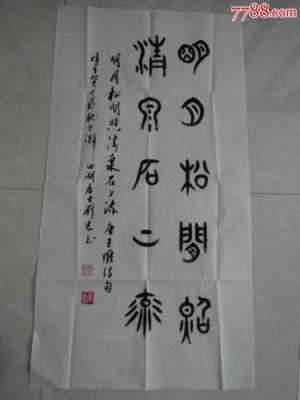 7788.com
明月松間照
清泉石上流
明月松間照清泉石上流唐王維詩句
癸巳秋上澣